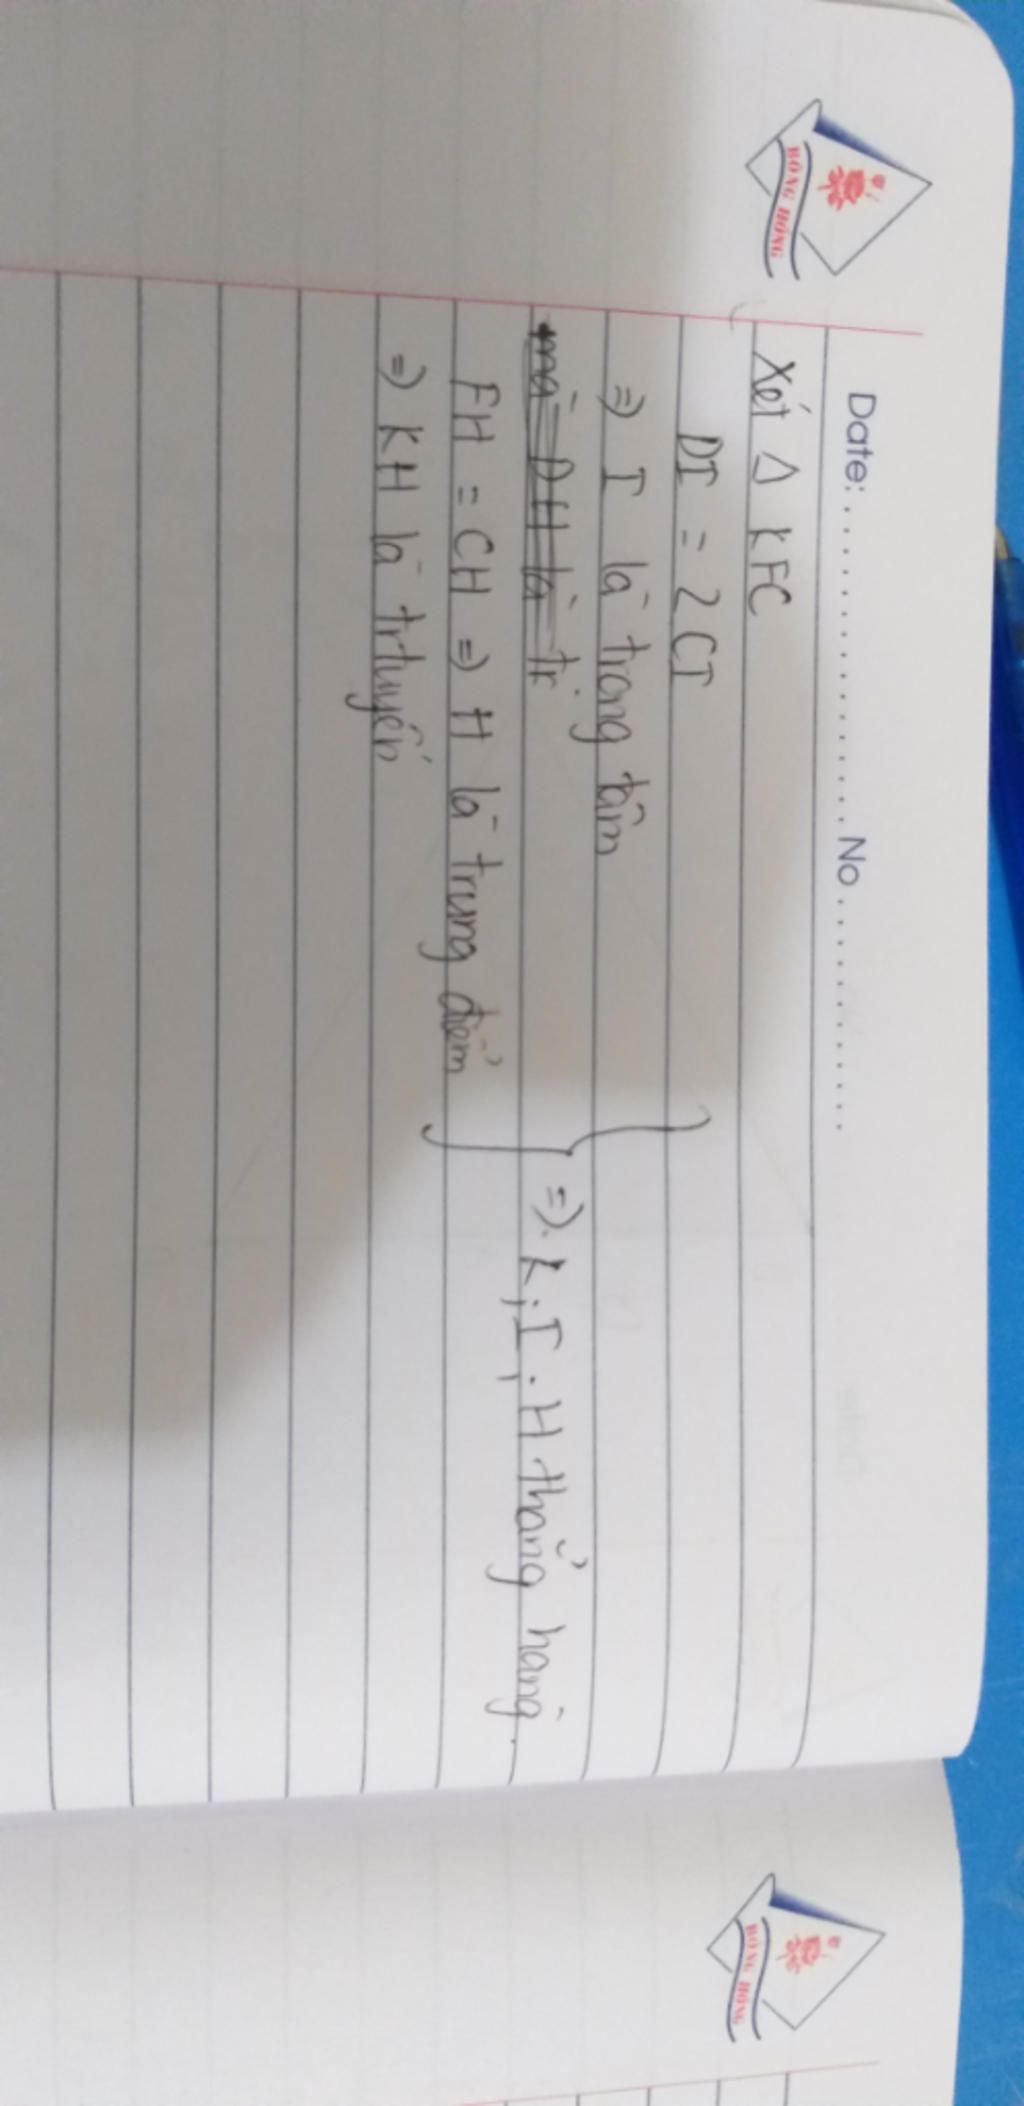 BÔNG HỒNG
Date: .................... No ..............
Xét Δ KFC
DI = 2 CI
=> I là trọng tâm
mà DH là tr
FH = CH => H là trung điểm
=> K; I; H thẳng hàng.
=> KH là trtuyến
BÔNG HỒNG